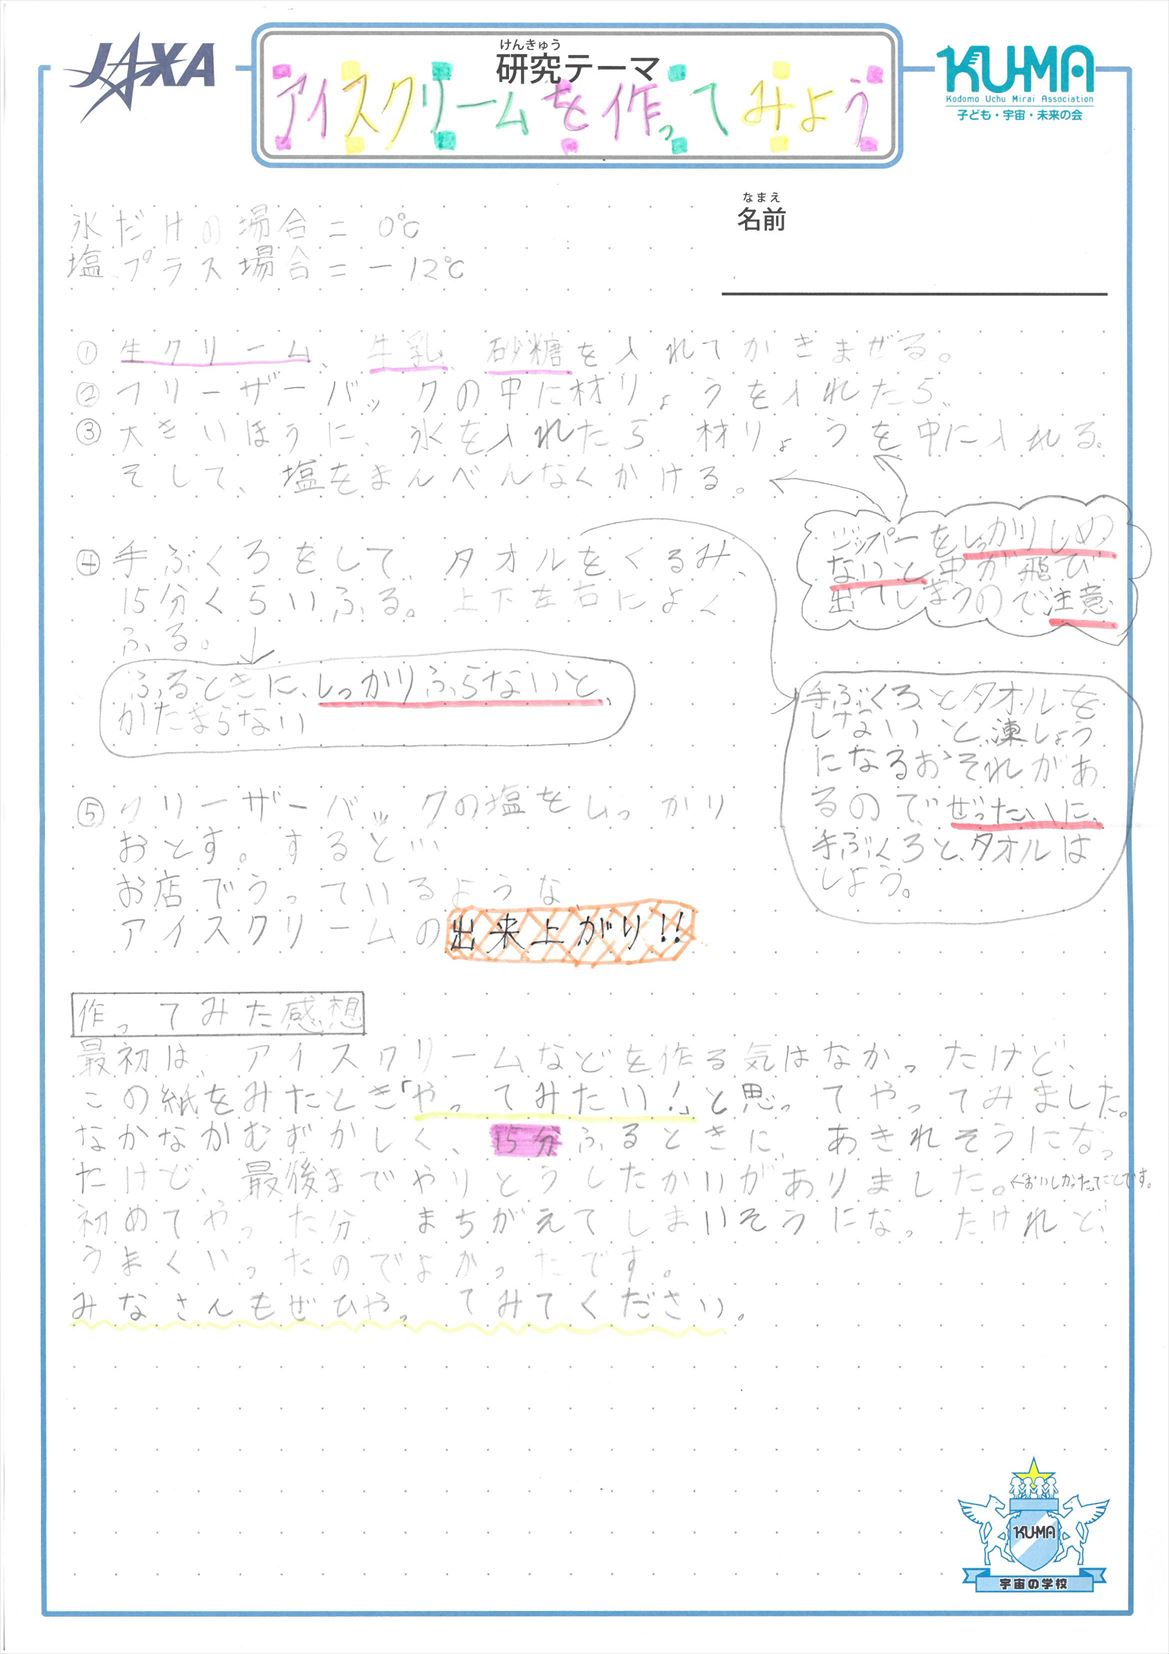 JAXA
けんきゅう
研究テーマ
アイスクリームを作ってみよう
KU-MA
Kodomo Uchu Mirai Association
子ども・宇宙・未来の会
なまえ
名前
氷だけの場合=0℃
塩プラス場合=-12℃
①生クリーム、牛乳、砂糖を入れてかきまぜる。
②フリーザーバックの中に材りょうを入れたら、
③大きいほうに、氷を入れたら材りょうを中に入れる。
そして、塩をまんべんなくかける。
ジッパーをしっかりしめ
ないと中が飛び
出てしまうので注意
④手ぶくろをして、タオルをくるみ、
15分くらいふる。上下左右によく
ふる。
ふるときに、しっかりふらないと、
かたまらない
手ぶくろとタオルを
しないと凍しょう
になるおそれがあ
るので、ぜったいに、
手ぶくろと、タオルは
しよう。
⑤フリーザーバックの塩をしっかり
おとす。すると…
お店でうっているような
アイスクリームの出来上がり!!
作ってみた感想
最初は、アイスクリームなどを作る気はなかったけど、
この紙をみたとき「やってみたい!」と思ってやってみました。
なかなかむずかしく、15分ふるときに、あきれそうになっ
たけど、最後までやりとうしたかいがありました。←おいしかったてことです。
初めてやった分、まちがえてしまいそうになったけれど、
うまくいったのでよかったです。
みなさんもぜひやってみてください。
KU-MA
宇宙の学校